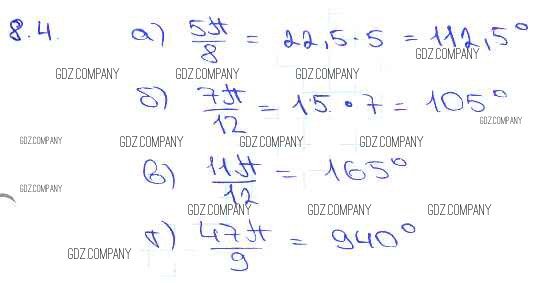 8.4. а) 5π/8 = 22,5·5 = 112,5°
GDZ.COMPANY
GDZ.COMPANY GDZ.COMPANY GDZ.COMPANY
б) 7π/12 = 15·7 = 105°
GDZ.COMPANY
GDZ.COMPANY GDZ.COMPANY GDZ.COMPANY GDZ.COMPANY
в) 11π/12 = 165°
GDZ.COMPANY
GDZ.COMPANY GDZ.COMPANY GDZ.COMPANY
г) 47π/9 = 940°
GDZ.COMPANY